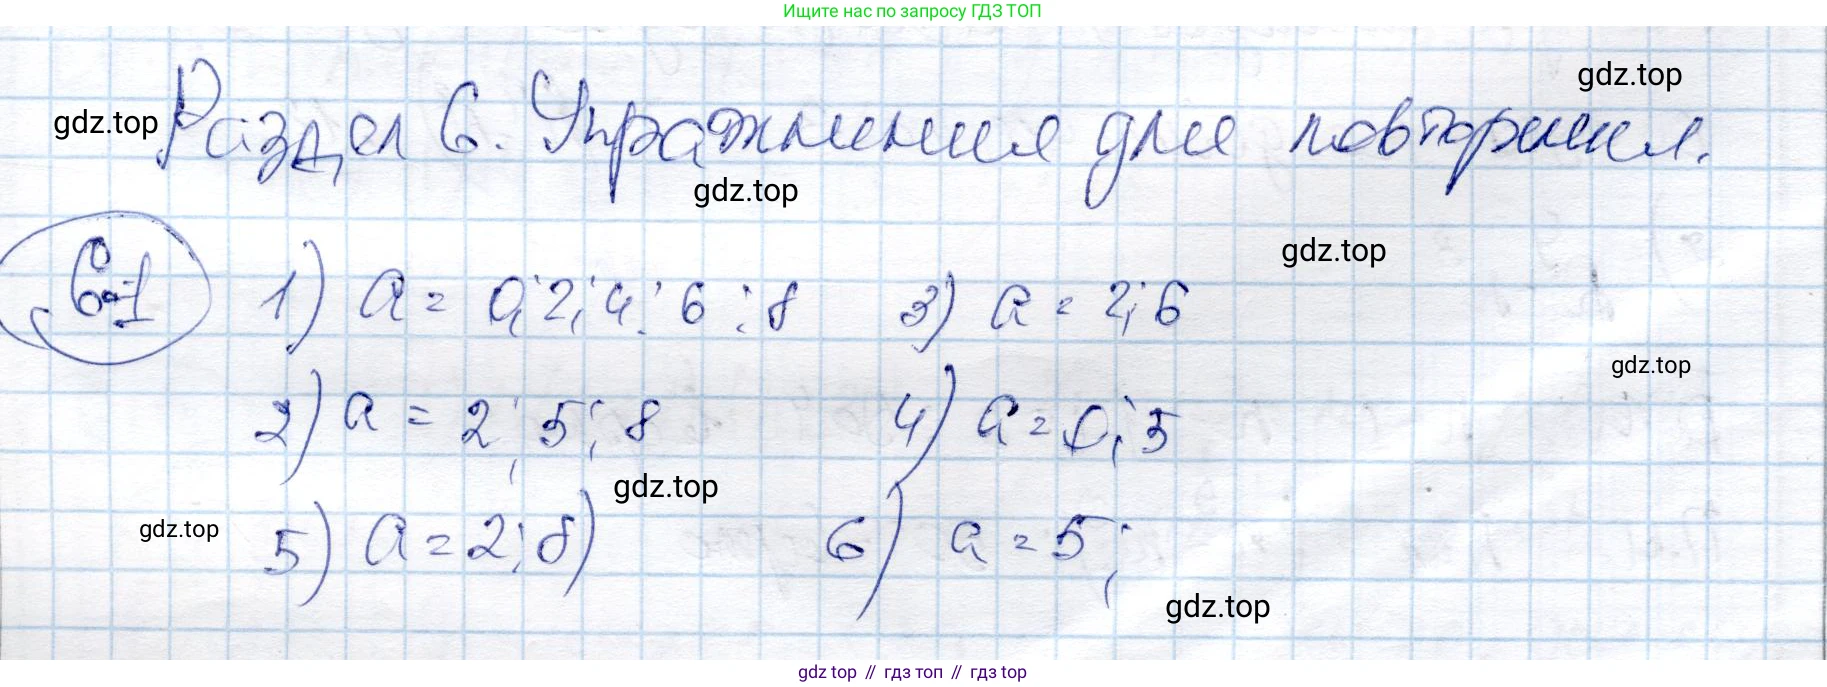 Ищите нас по запросу ГДЗ ТОП
gdz.top
gdz.top
Раздел 6. Упражнения для повторения.
gdz.top
6.1 1) a = 0; 2; 4; 6; 8 3) a = 2; 6
gdz.top
gdz.top
2) a = 2; 5; 8 4) a = 0; 5
gdz.top
gdz.top
5) a = 2; 8) 6) a = 5;
gdz.top
gdz top // гдз топ // гдз top